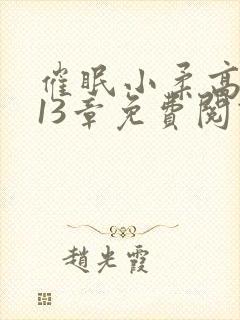 催眠小柔高
13章免費閱
趙光霞